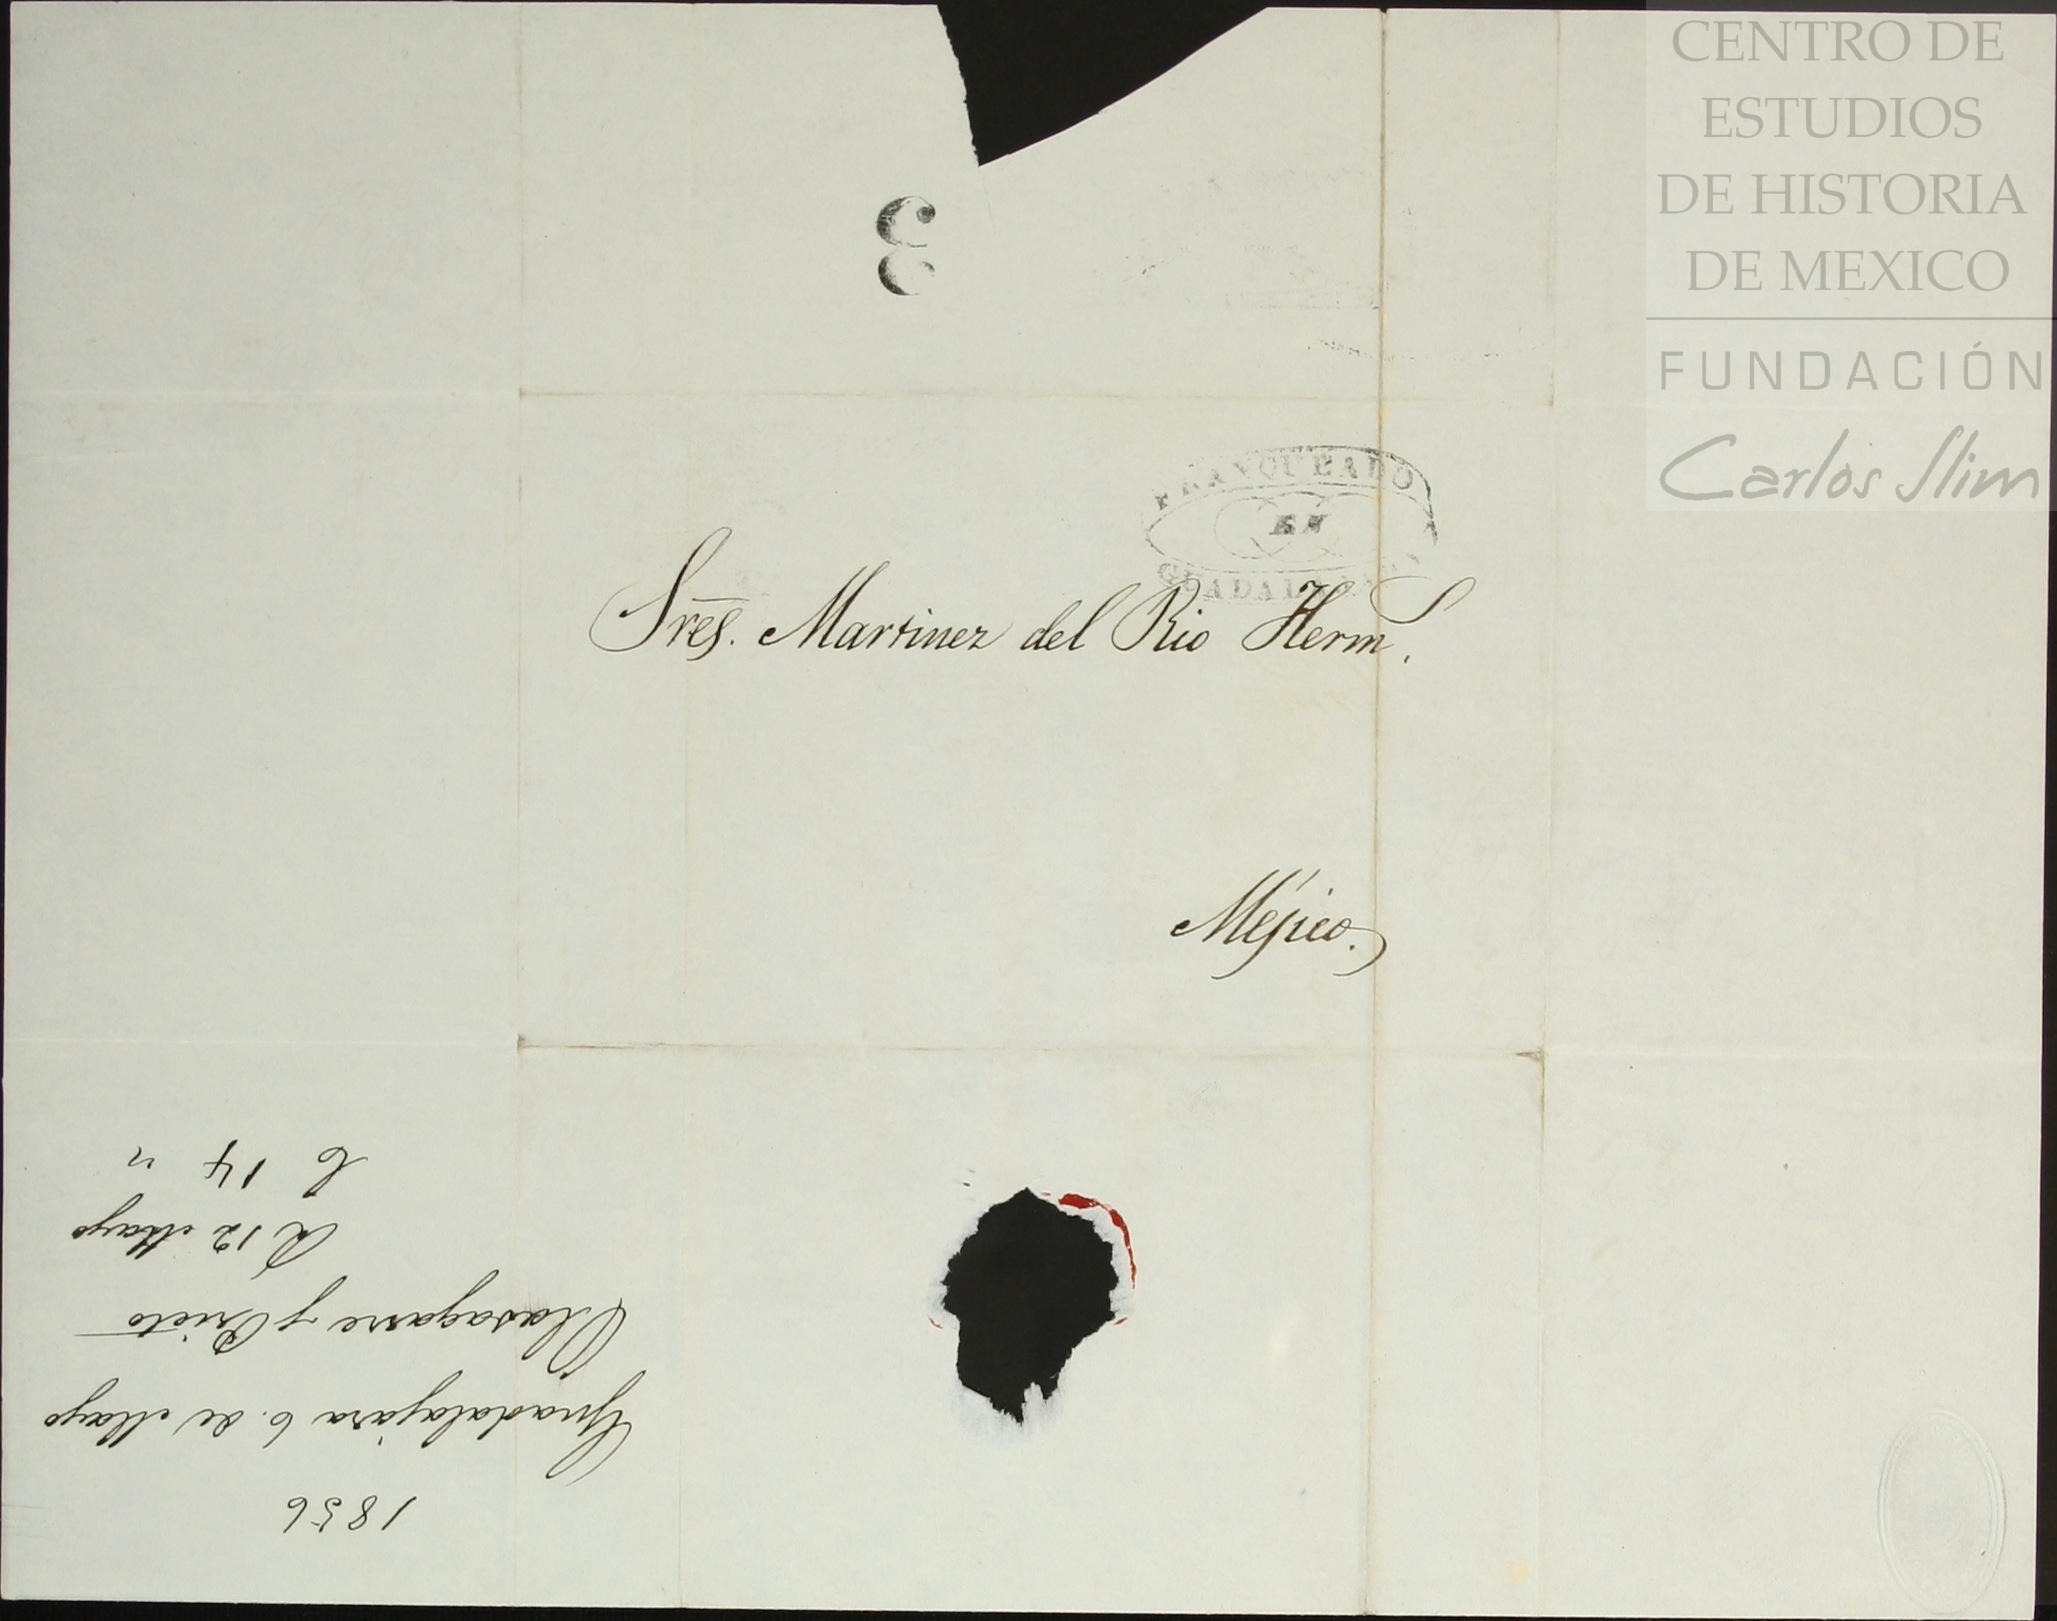 CENTRO DE
ESTUDIOS
DE HISTORIA
DE MEXICO
FUNDACIÓN
Carlos Slim
3
FRANQUEADO
EN
GUADALAJARA
Sres. Martinez del Rio Herm.s
Méjico.
1856
Guadalajára 6. de Mayo
Olasagarre y Prieto
R 12 Mayo
C 14 "